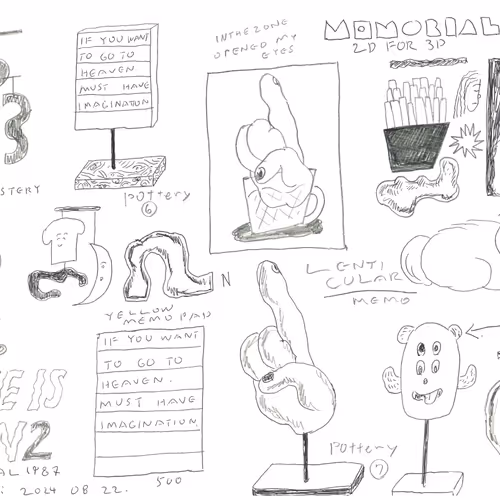 IF YOU WANT
TO GO TO
HEAVEN
MUST HAVE
IMAGINATION
POTTERY
6
INTREZONE
OPENED MY
EYES
MEMORIAL
2D FOR 3D
3
STERY
N
LENTI
CULAR
MEMO
YELLOW
MEMO PAD
IF YOU WANT
TO GO TO
HEAVEN.
MUST HAVE
IMAGINATION.
500
E IS
2
AL 1987
2024 08 22.
POTTERY
7